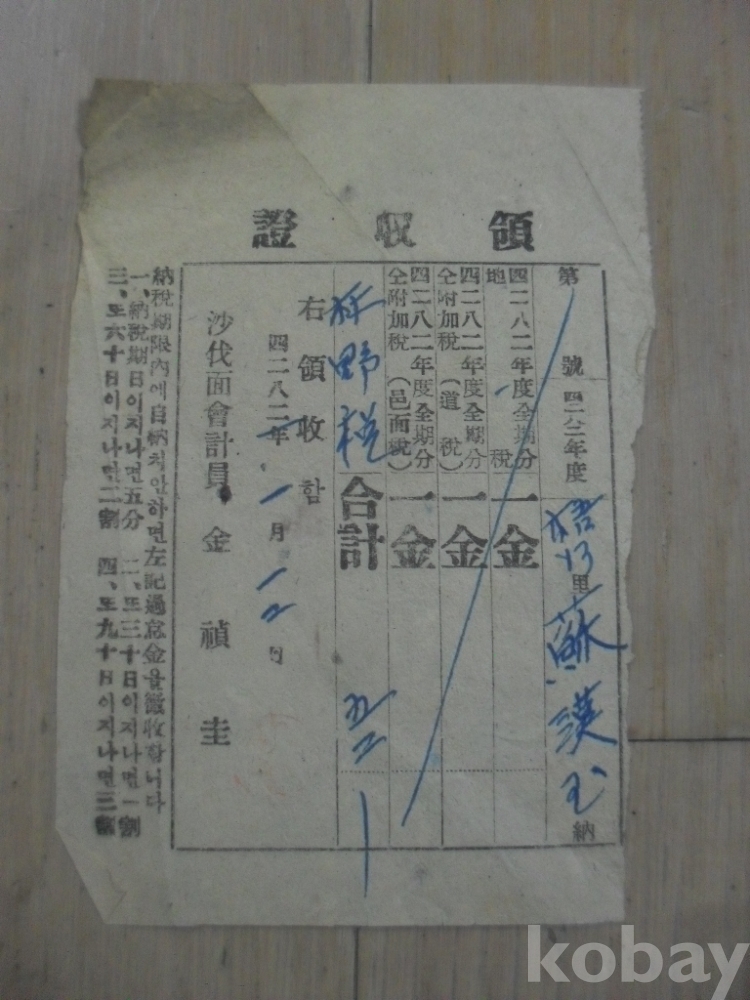 領收證
第 號 四二八二年度 里 蘇漢玉 納
四二八二年度全期分 地稅 一金
四二八二年度全期分 仝附加稅(道稅) 一金
四二八二年度全期分 仝附加稅(邑面稅) 一金
林野稅 合計 五二
右領收함
四二八二年 一月 一二日
沙伐面會計員 金禎圭
納稅期限內에自納치안하면左記過怠金을徵收합니다
一、納稅期日이지나면五分 二、또三十日이지나면一割
三、또六十日이지나면二割 四、또九十日이지나면三割
kobay